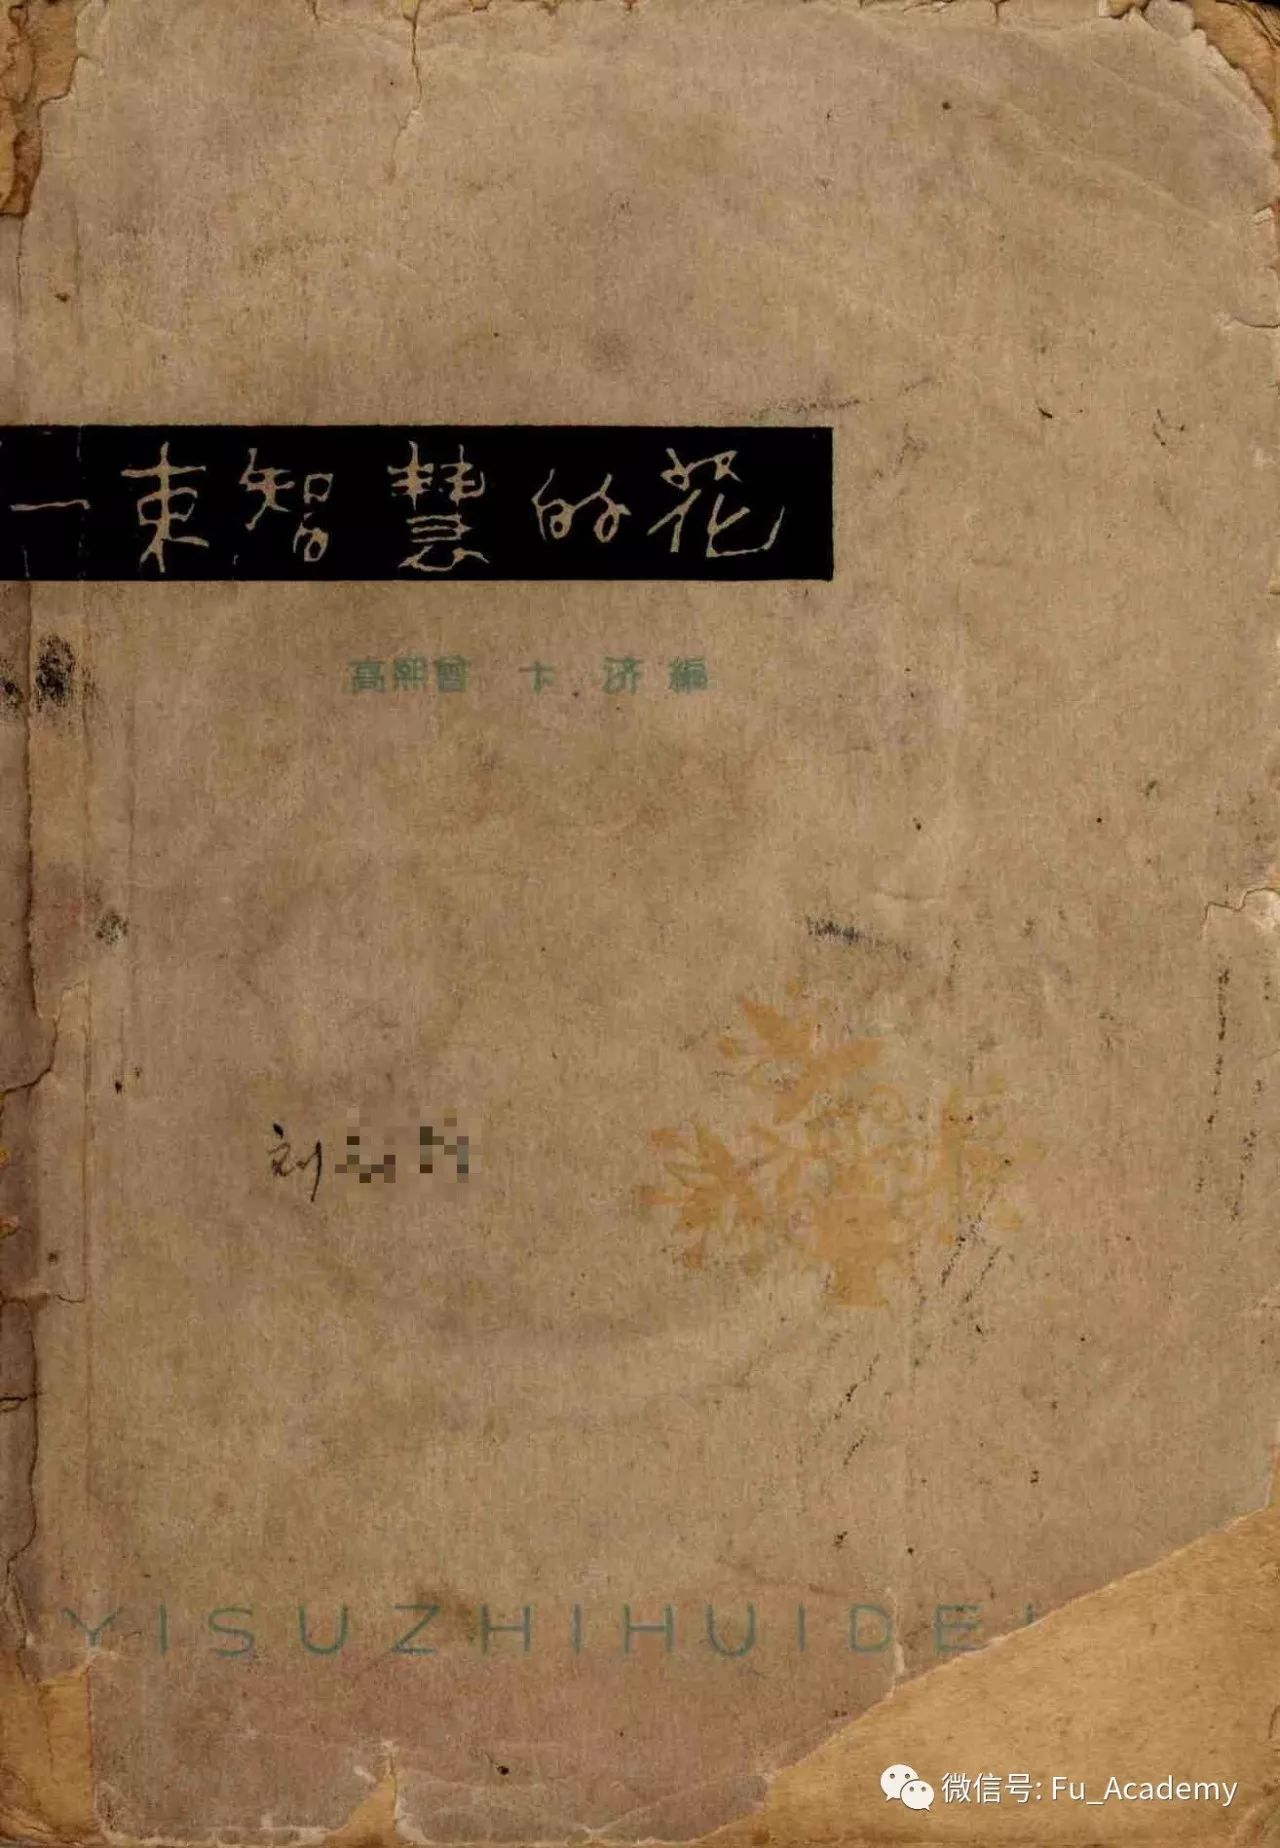 一束智慧的花
高熙曾 卞 济 編
刘
YISUZHIHUIDE
微信号: Fu_Academy